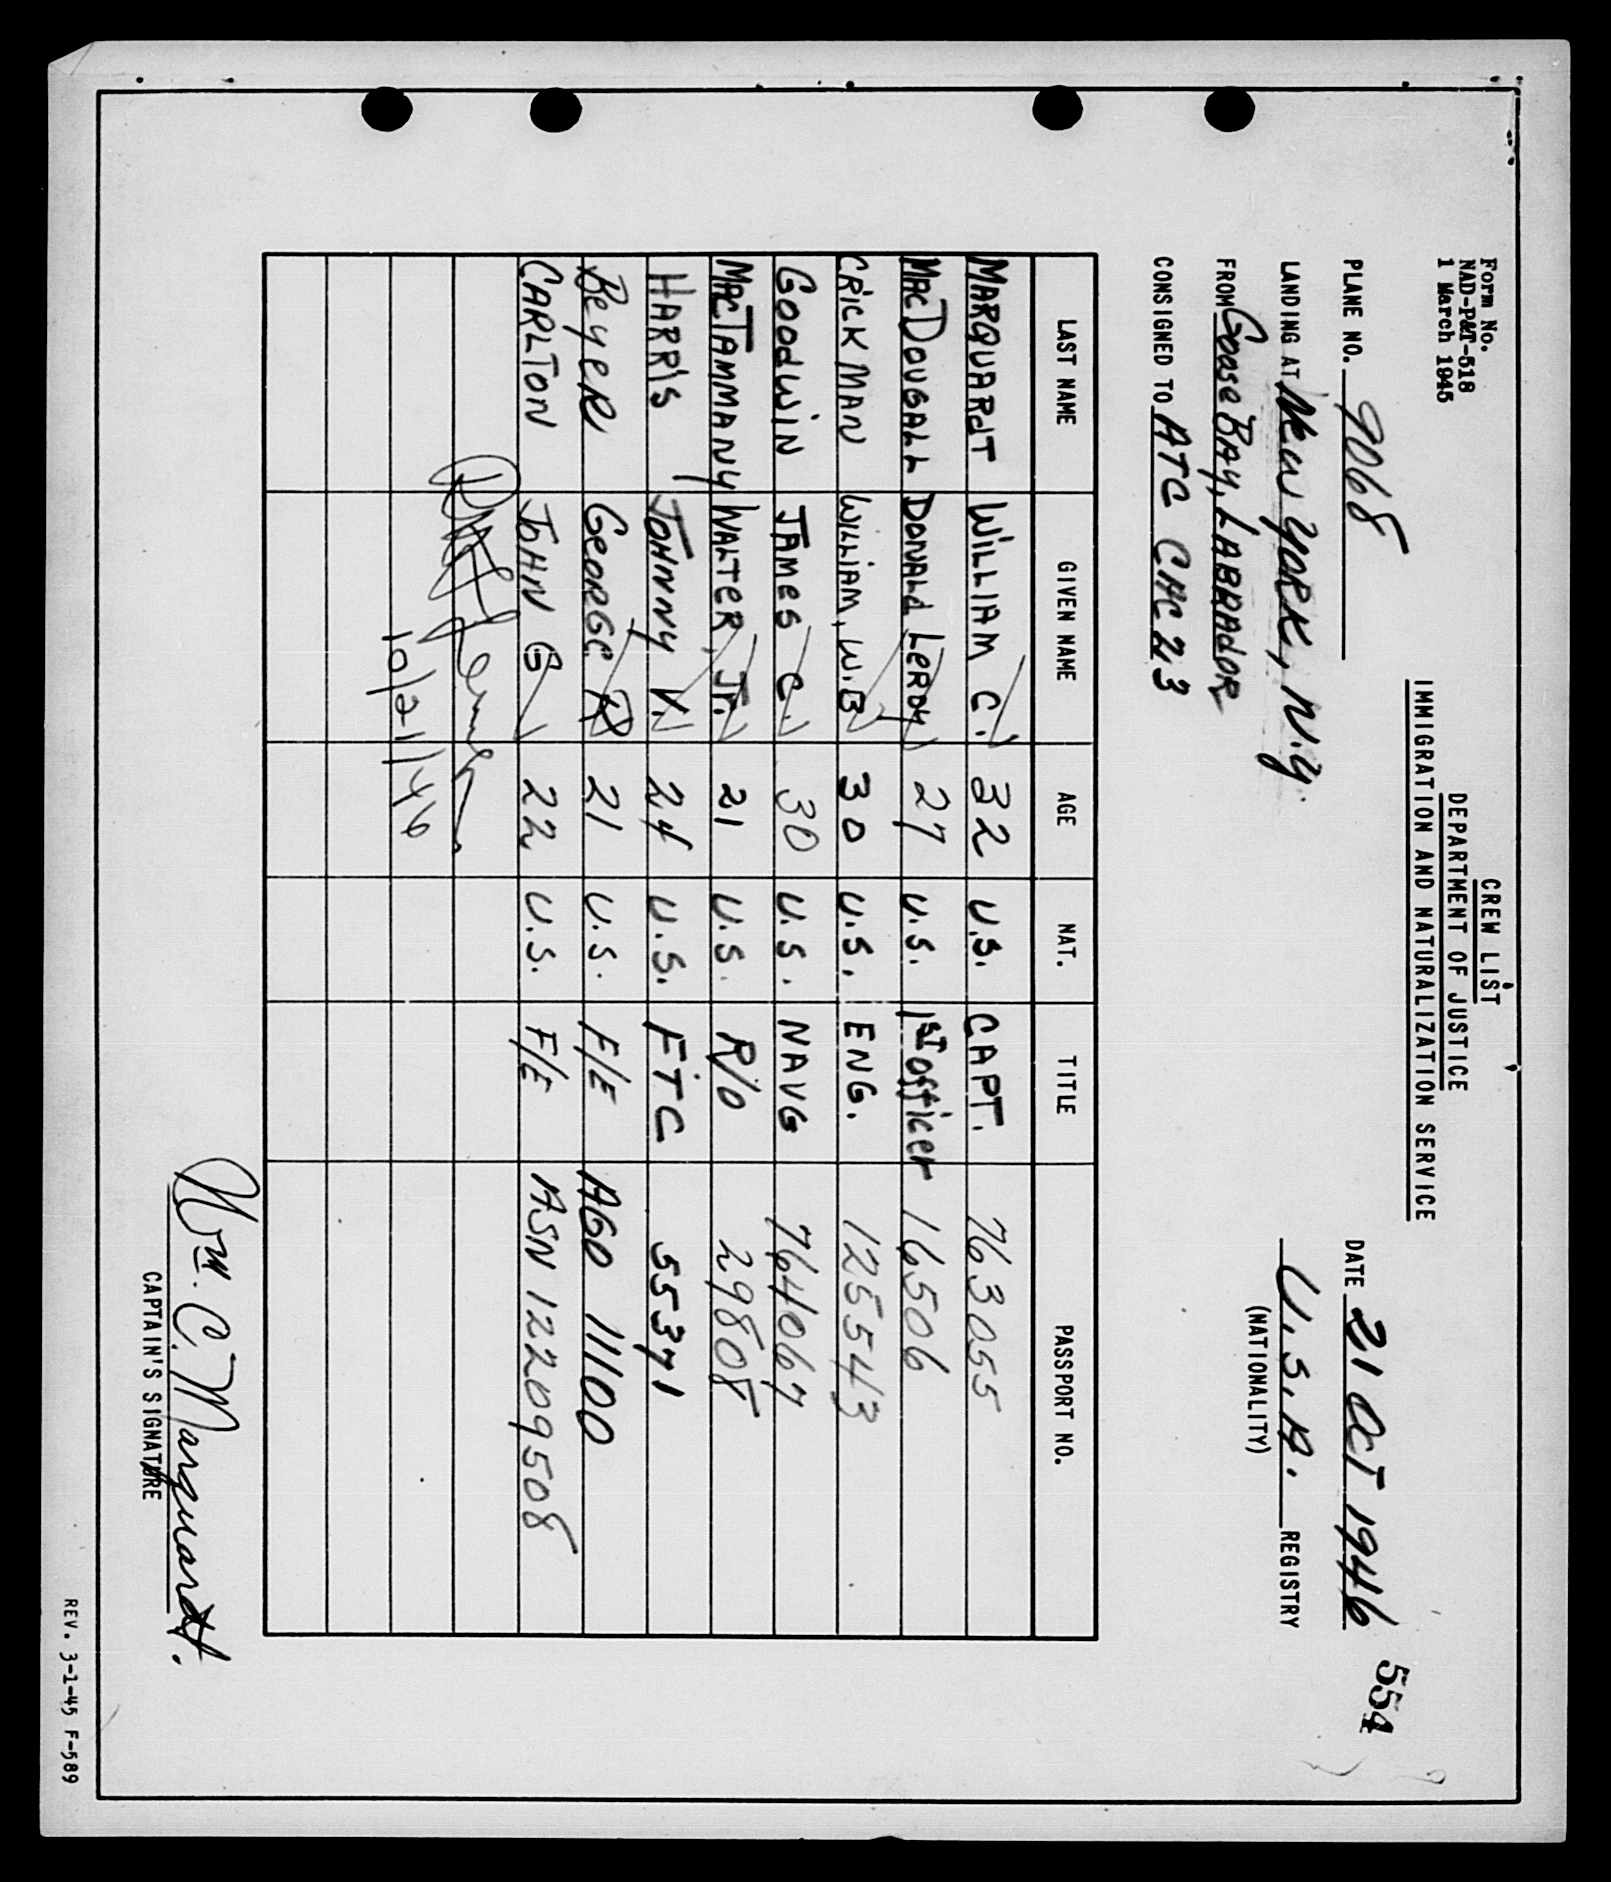 Form No.
NAD-P&T-518
1 March 1945
CREW LIST
DEPARTMENT OF JUSTICE
IMMIGRATION AND NATURALIZATION SERVICE
554
PLANE NO. 9068 DATE 21 OCT 1946
LANDING AT New York, N.Y. U.S.A. REGISTRY
(NATIONALITY)
FROM Goose Bay, Labrador
CONSIGNED TO ATC
LAST NAME GIVEN NAME AGE NAT. TITLE PASSPORT NO.
MARQUARdT WILLIAM C. 32 U.S. CAPT. 763055
MacDOUGALL DONALd LeROY 27 U.S. 1ST Officer 16506
CRICKMAN WILLIAM, W.B 30 U.S. ENG. 125543
GOODWIN JAMES C. 30 U.S. NAVG 764067
MACTAMMANY WALTER, Jr. 21 U.S. R/O 29808
HARRIS JOHNNY V. 24 U.S. FTC 55371
BeyeR GEORGE R 21 U.S. F/E AGO 11100
CARLTON JOHN G 22 U.S. F/E ASN 12209508
10/21/46
Wm. C. Marquardt.
CAPTAIN'S SIGNATURE
REV. 3-1-45 F-589